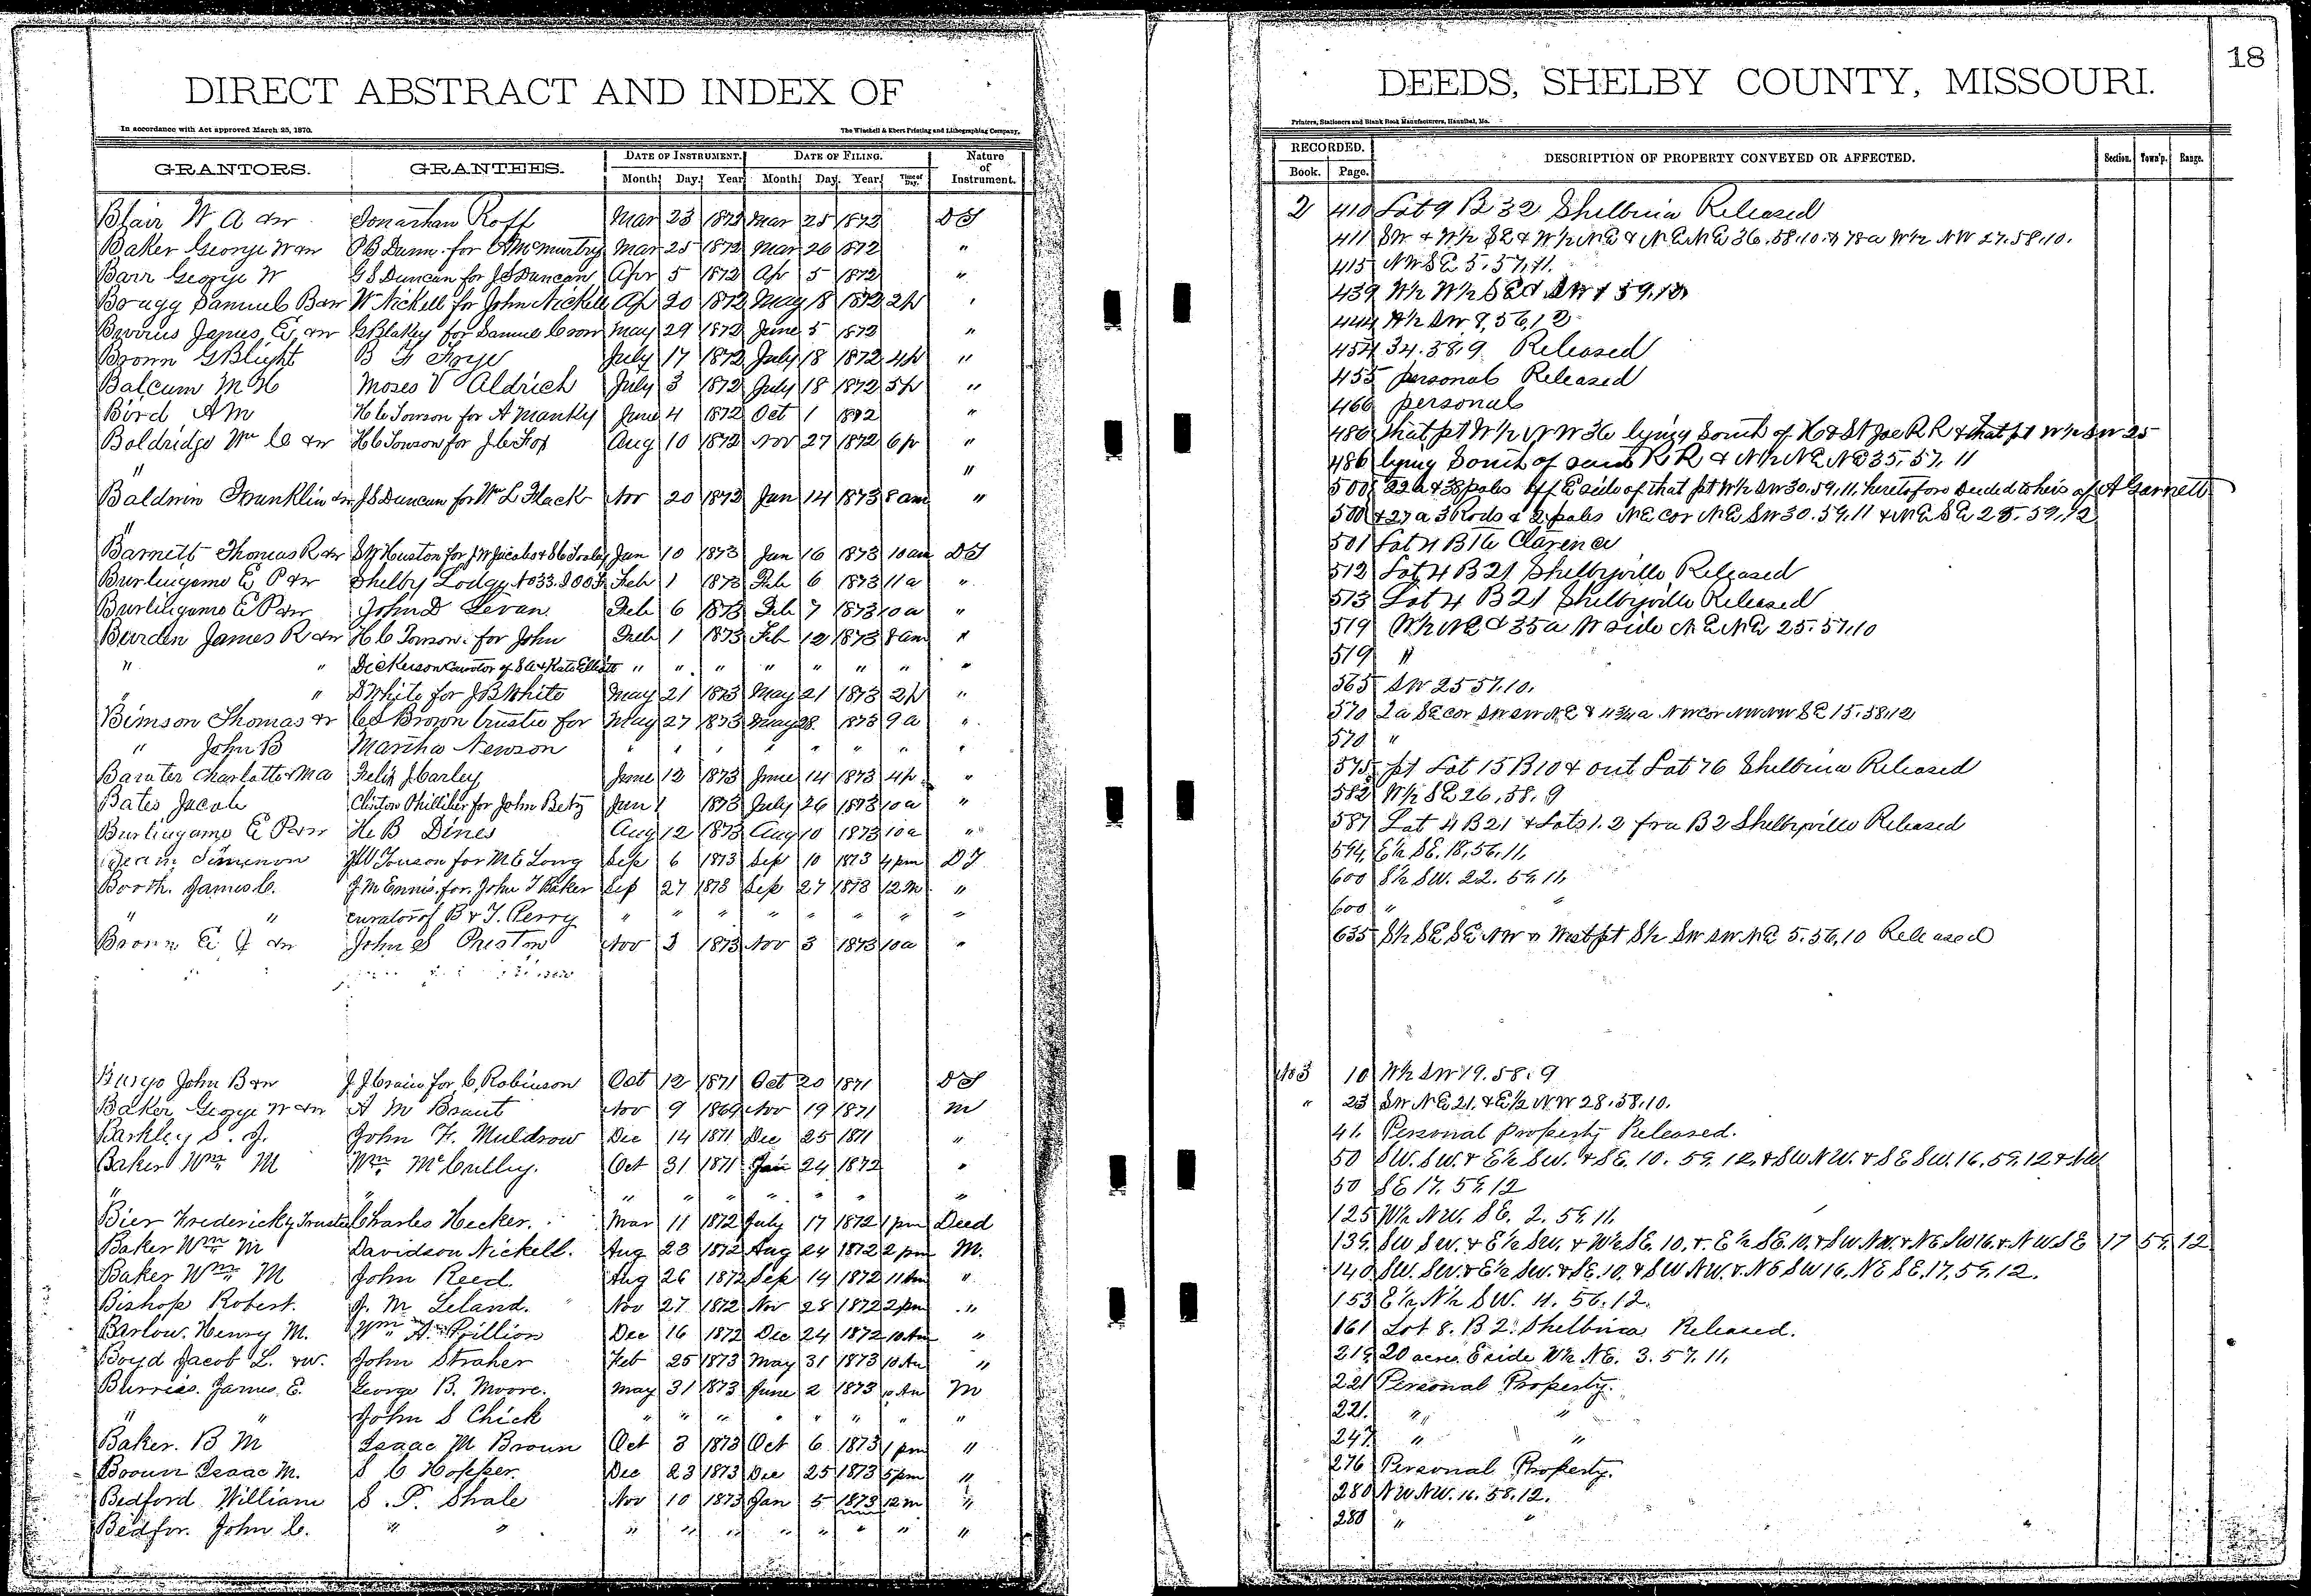 18
DIRECT ABSTRACT AND INDEX OF DEEDS, SHELBY COUNTY, MISSOURI.
In accordance with Act approved March 25, 1870. The Winchell & Ebert Printing and Lithographing Company, Printers, Stationers and Blank Book Manufacturers, Hannibal, Mo.
GRANTORS. GRANTEES. DATE OF INSTRUMENT. DATE OF FILING. Nature of Instrument. RECORDED. DESCRIPTION OF PROPERTY CONVEYED OR AFFECTED. Section. Town'p. Range.
Month. Day. Year. Month. Day. Year. Time of Day. Book. Page.
Blair W A &w Jonathan Roff Mar 23 1872 Mar 25 1872 DT 2 410 Lot 9 B 32 Shelbina Released
Baker George W &w P B Dunn for A McMurtry Mar 25 1872 Mar 26 1872 " 411 SW & W½ SE & W½ NE & NE NE 36.58.10. & 78a W½ NW 27.58.10.
Barr George W G S Duncan for J S Duncan Apr 5 1872 Apr 5 1872 " 415 NW SE 5.57.11.
Samuel B &w W Nickell for John Nickell Ap 20 1872 May 18 1872 2p " 439 W½ W½ SE & SW 1 59.10
James E &w G Blakey for Samuel Crow May 29 1872 June 5 1872 " 444 SW 8,56,12
Brown G Blight B F Frye July 17 1872 July 18 1872 4p " 454 34.58.9 Released
Balcum M H Moses V Aldrich July 3 1872 July 18 1872 5p " 455 personal Released
Bird A M H C Towson for A Manky June 4 1872 Oct 1 1872 " 466 personal
Boldridge Wm C &w H C Towson for J C Fox Aug 10 1872 Nov 27 1872 6p " 486 that pt W½ NW 36 lying South of H & St Joe R R & that pt W½ SW 25
" " 486 lying South of said R R & N½ NE NE 35.57.11
Baldwin Franklin &w J S Duncan for Wm L Flack Nov 20 1872 Jan 14 1873 8am " 500 22a & 38 poles off E side of that pt W½ SW 30.59.11, heretofore deeded to heirs of A Garnett
" 500 & 27a 3 Rods & 2 poles NE cor NE SW 30.59.11 & NE SE 25.59.12
Barnett Thomas R &w Huston for J W Jacobs & Jan 10 1873 Jan 16 1873 10am DT 501 Lot 4 B 16 Clarence
Burlingame E P &w Shelby Lodge No 33. I O O F Feb 1 1873 Feb 6 1873 11a " 512 Lot 4 B 21 Shelbyville Released
Burlingame E P &w John D Levan Feb 6 1873 Feb 7 1873 10a " 513 Lot 4 B 21 Shelbyville Released
Burden James R &w H C Towson for John Feb 1 1873 Feb 12 1873 8am " 519 W½ NE & 35a W side NE NE 25.57.10
" " Dickerson Curator of S C & Kate Elliott " " " " " " " " 519 "
" " D White for J B White May 21 1873 May 21 1873 2p " 565 SW 25 57.10.
Bimson Thomas &w C S Brown trustee for May 27 1873 May 28 1873 9a " 570 2a SE cor SW SW NE & 4 3/4a NW cor NW NW SE 15.58.12
" John B Martha Newson " " " " " " " " 570 "
Charlotte & Ma Felix J Carley June 12 1873 June 14 1873 4p " 575 pt Lot 15 B 10 & out Lot 76 Shelbina Released
Bates Jacob Clinton Philliber for John Betz Jun 1 1873 July 26 1873 10a " 582 W½ SE 26,58.9
Burlingame E P &w H B Dines Aug 12 1873 Aug 10 1873 10a " 587 Lot 4 B 21 & Lots 1.2 fra B 2 Shelbyville Released
J W Towson for M E Long Sep 6 1873 Sep 10 1873 4pm DT 594 E½ SE. 18,56.11,
Booth. James C. J. M Ennis. for. John T Baker Sep 27 1873 Sep 27 1873 12M " 600 S½ SW. 22. 59.11,
" " curator of B & T. Perry " " " " " " " " 600 " "
Brown E J &w John S Preston Nov 3 1873 Nov 3 1873 10a " 635 S½ SE SE NW & West pt S½ SW SW NE 5.56.10 Released
John B &w J. J. Crain for C. Robinson Oct 12 1871 Oct 20 1871 DT No 3 10 W½ SW 19.58.9
Baker George W &w A M Braut Nov 9 1869 Nov 19 1871 M " 23 SW NE 21. & E½ NW 28.58.10.
Barkley S. J. John F. Muldrow Dec 14 1871 Dec 25 1871 " 41. Personal property Released.
Baker Wm M Wm McCulley. Oct 31 1871 Jan 24 1872 " 50 SW. SW. & E½ SW. & SE. 10. 59.12, & SW NW. & SE SW. 16.59.12 & NW
" " " " " " " " " 50 SE 17. 59.12
Bier Frederick y Trustee Charles Hecker. Mar 11 1872 July 17 1872 1pm Deed 125 W½ NW. SE. 2. 59.11.
Baker Wm M Davidson Nickell. Aug 23 1872 Aug 24 1872 2pm M. 139. SW SW. & E½ SW. & W½ SE. 10. & E½ SE. 10, & SW NW. & NE SW 16. & NW SE 17 59 12
Baker Wm M John Reed Aug 26 1872 Sep 14 1872 11Am " 140 SW. SW. & E½ SW. & SE. 10, & SW NW. & NE SW 16. NE SE. 17, 59.12.
Bishop Robert. J. M Leland. Nov 27 1872 Nov 28 1872 2pm " 153 E½ N½ SW. 11. 56.12.
Barlow. Henry M. Wm A. Pillion Dec 16 1872 Dec 24 1872 10Am " 161 Lot 8. B 2. Shelbina Released.
Boyd Jacob L. &w. John Straher Feb 25 1873 May 31 1873 10Am " 219. 20 acres. E side W½ NE. 3.57.11,
Burriss. James. E. George B. Moore. May 31 1873 June 2 1873 10Am M 221 Personal Property.
" " John S Chick " " " " " " " " 221. " "
Baker. B M Isaac M Brown Oct 3 1873 Oct 6 1873 1pm " 247. " "
Brown Isaac M. S C Hopper. Dec 23 1873 Dec 25 1873 5pm " 276 Personal Property.
Bedford William S. P. Shale Nov 10 1873 Jan 5 1873 12m " 280 NW NW. 16. 58.12.
Bedfor. John C. " " " " " " " " " " 280 " "